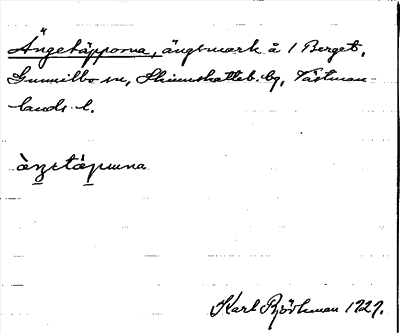 Ängetäpporna, ängsmark å 1 Berget,
Gunnilbo sn, Skinnskatteb. hg, Västman-
lands l.
Karl Björkman 1929.